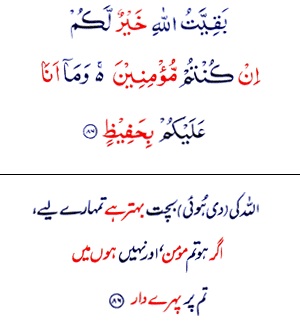 بَقِيَّتُ اللّٰهِ خَيْرٌ لَّكُمْ
اِنْ كُنْتُمْ مُّؤْمِنِيْنَ ۬ۚ وَمَاۤ اَنَا
عَلَيْكُمْ بِحَفِيْظٍ ﴿۸۶﴾
اللہ کی (دی ہُوئی) بچت بہتر ہے تمہارے لیے،
اگر ہو تم مومن، اور نہیں ہوں میں
تم پر پہرے دار ﴿۸۶﴾